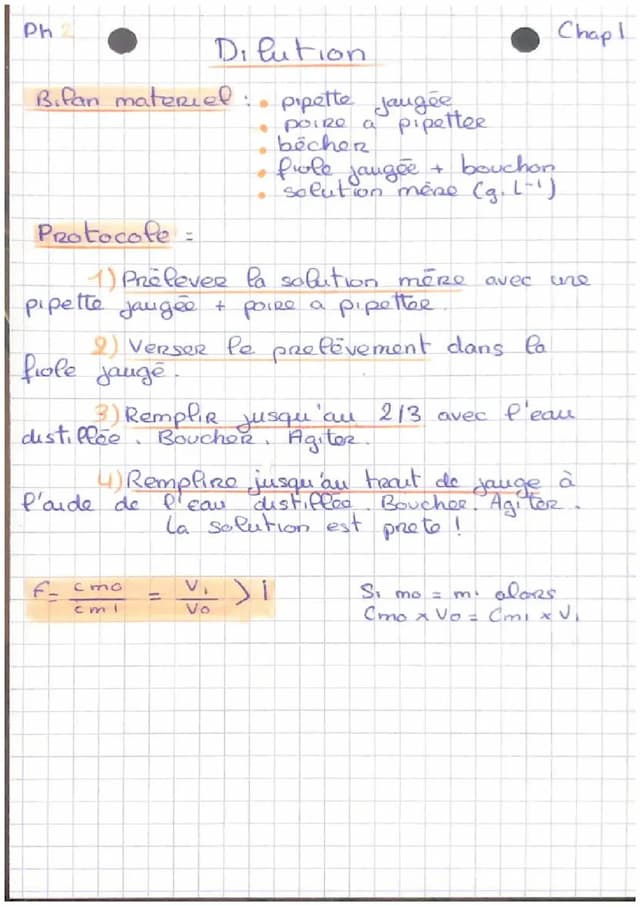 Ph 2
Chap 1
Dilution
Bilan materiel :
• pipette jaugée
• poire a pipetter
• bécher
• fiole jaugée + bouchon
• solution mère (g.L⁻¹)
Protocole :
1) Prélever la solution mère avec une
pipette jaugée + poire a pipetter.
2) Verser le prelèvement dans la
fiole jaugé.
3) Remplir jusqu'au 2/3 avec l'eau
distillée. Boucher. Agiter.
4) Remplire jusqu'au trait de jauge à
l'aide de l'eau distillée. Boucher. Agiter.
La solution est prete !
F = Cm0 / Cm1 = V1 / V0 > 1
Si m0 = m1 alors
Cm0 x V0 = Cm1 x V1